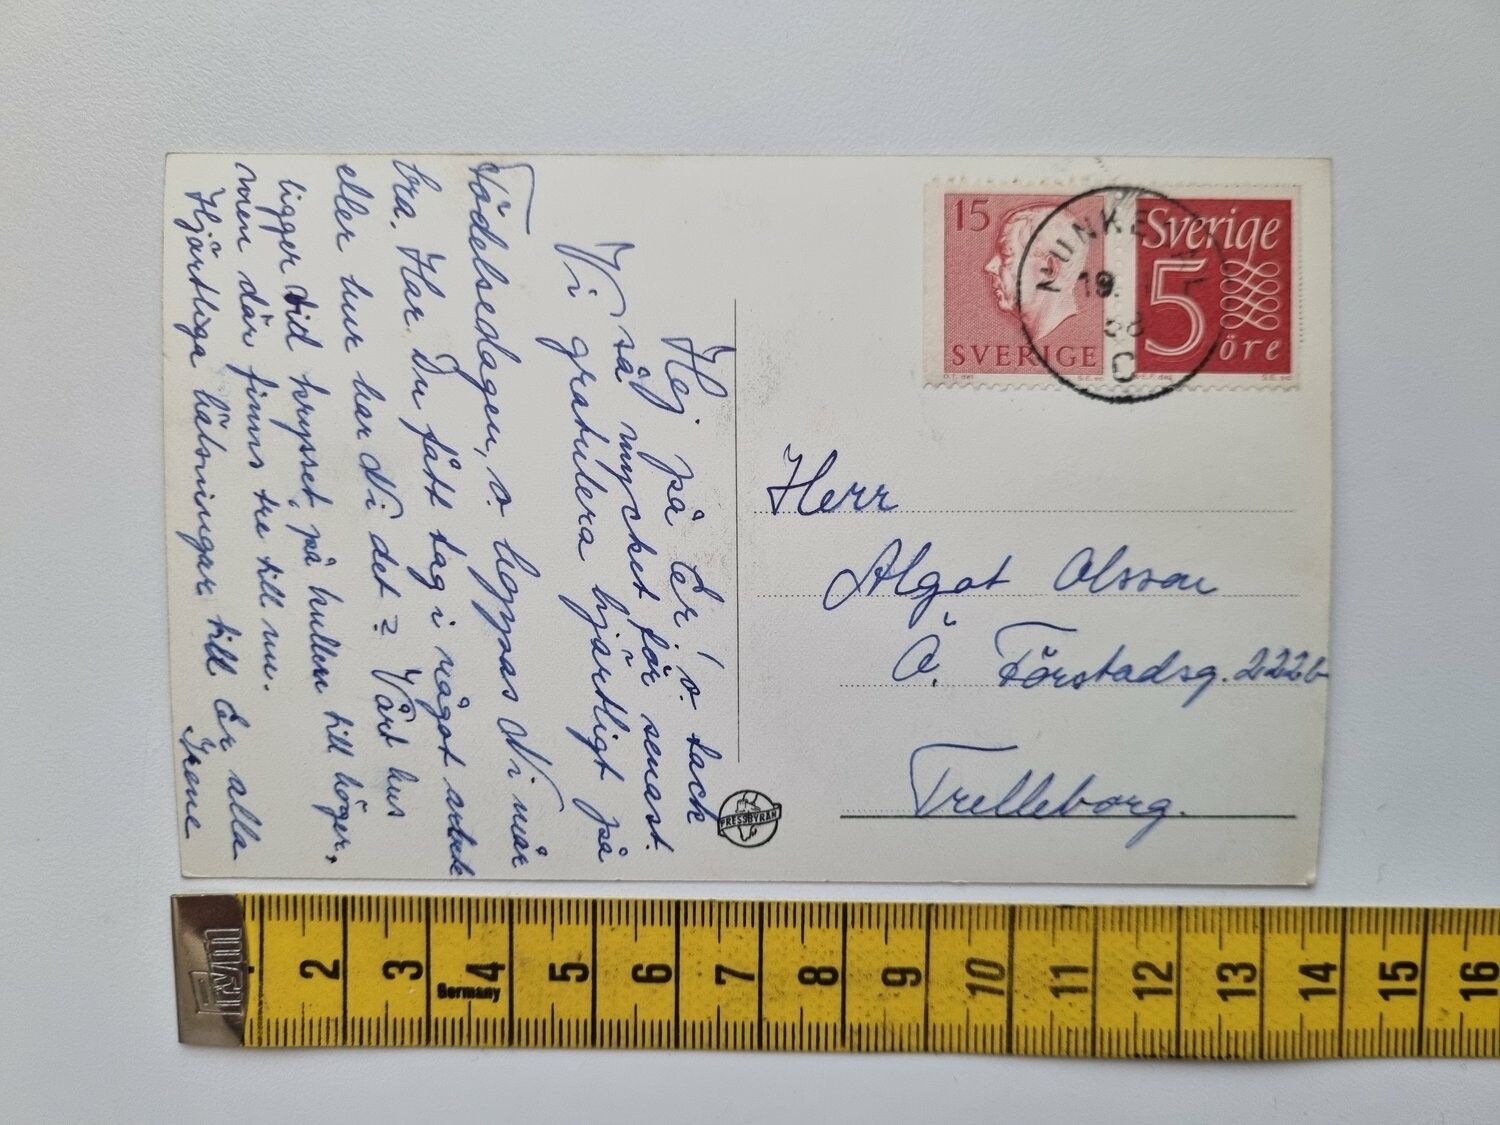 Hej på Er! o. tack
så mycket för senast.
Vi gratulera hjärtligt på
Födelsedagen, o. hoppas Ni mår
bra. Har Du fått tag i något arbete
eller hur har Ni det? Vårt hus
ligger till krysset, på kullen till höger,
men där finns tre till nu.
Hjärtliga hälsningar till Er alla
Irene
PRESSBYRÅN
15
SVERIGE
Sverige
5
öre
MUNKE
19.
58
C
Herr
Algot Olsson
Ö. Förstadsg. 222b
Trelleborg.
2
3
Germany
4
5
6
7
8
9
10
11
12
13
14
15
16